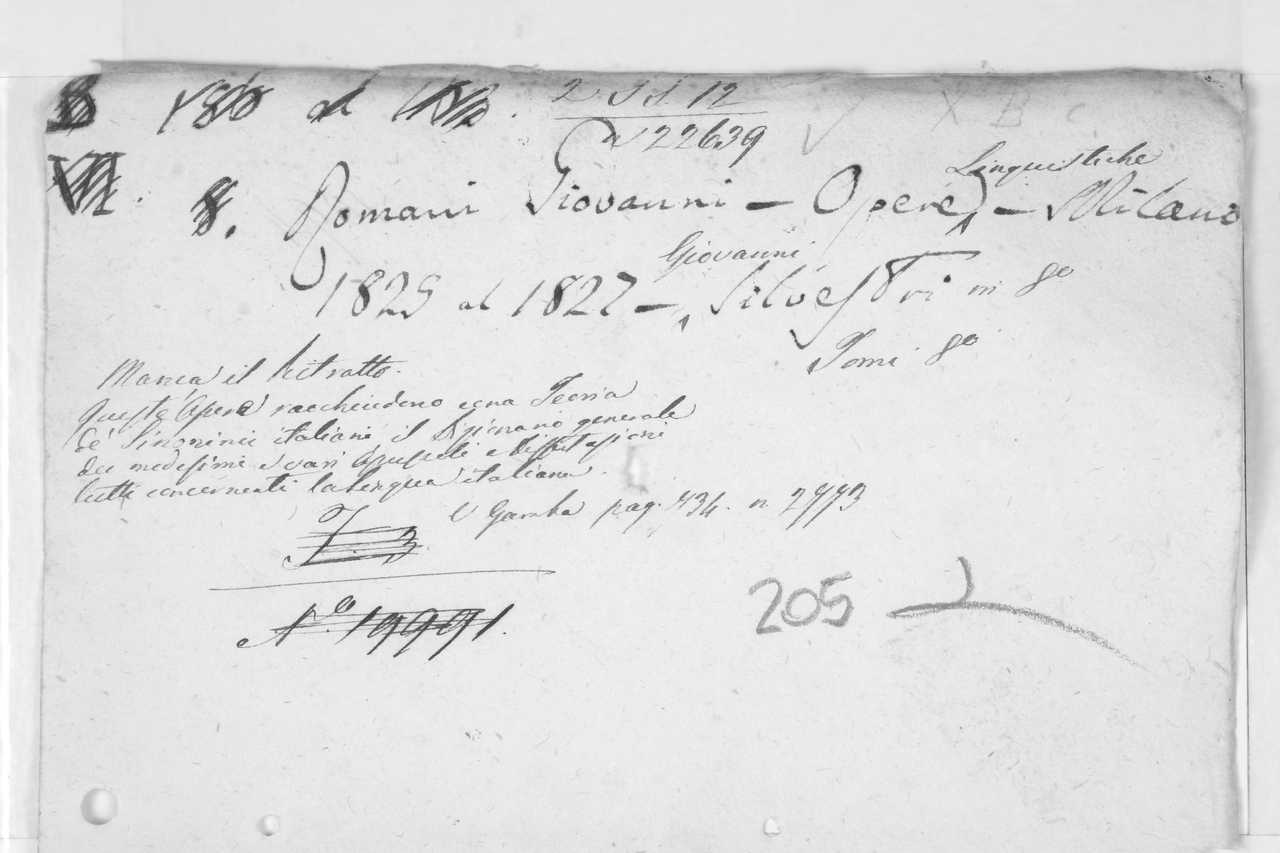 al
2 Sd. 12
n 22639
X B c
8. Romani Giovanni – Opere Linguistiche – Milano
1825 al 1827 – Giovanni Silvestri in 8º
Tomi 8º
Manca il Ritratto.
Queste Opere racchiudono una Teoria
de' Sinonimi italiani, il Dizionario generale
dei medesimi e vari Opuscoli e Dissertazioni
tutti concernenti la lingua italiana.
V Gamba pag. 734. n 2773
Nº 19991.
205